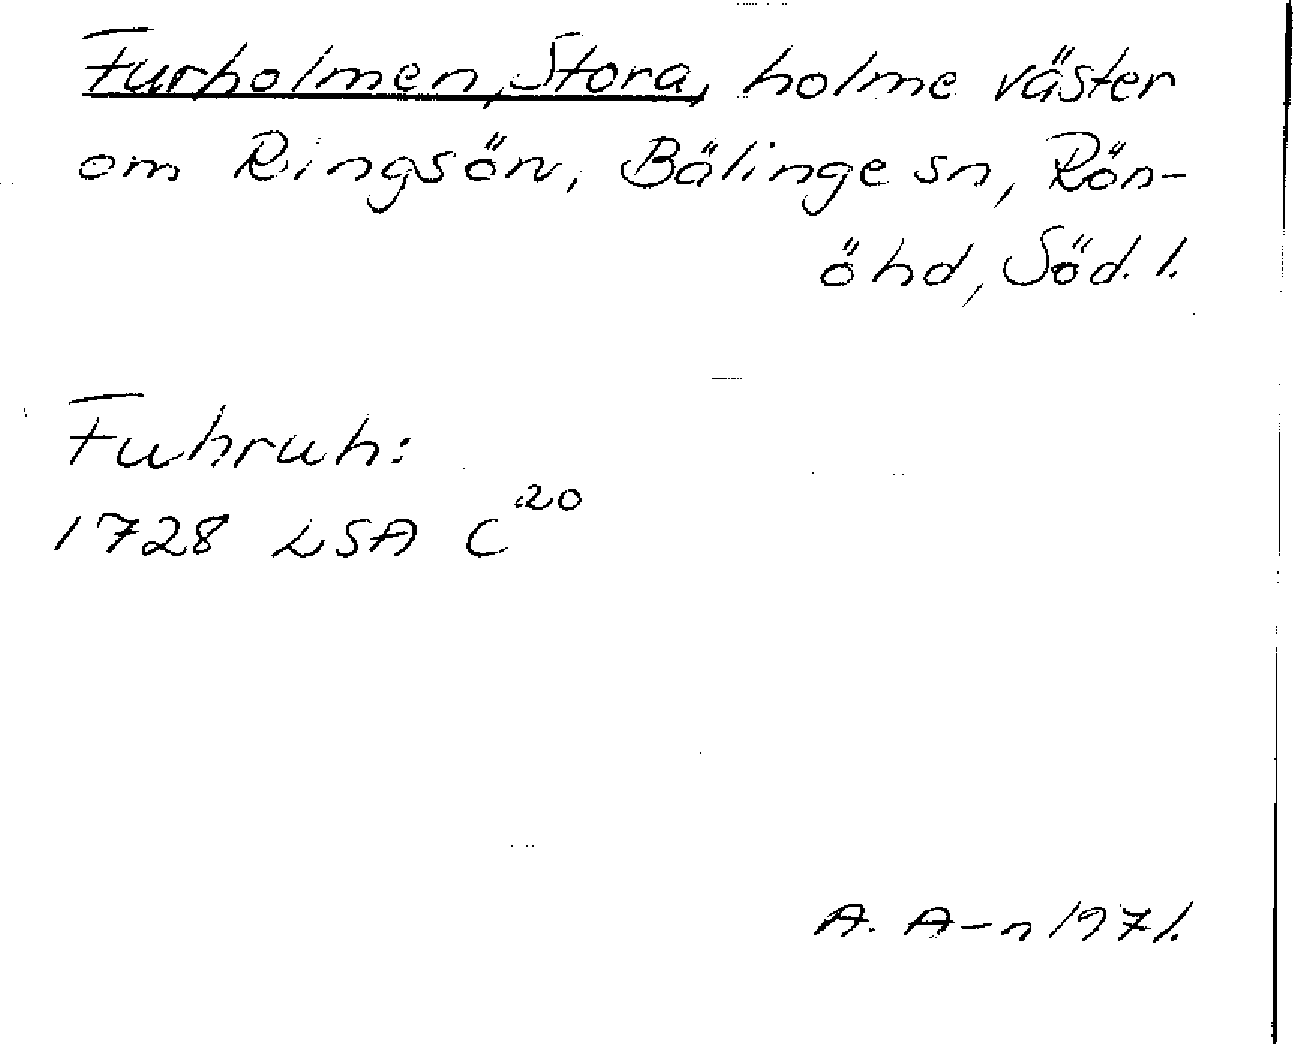 Furholmen, Stora, holme väster
om Ringsön, Bälinge sn, Rön-
öhd, Söd. l.
Fuhruh:
1728 LSA C²⁰
A. A-n 1971.